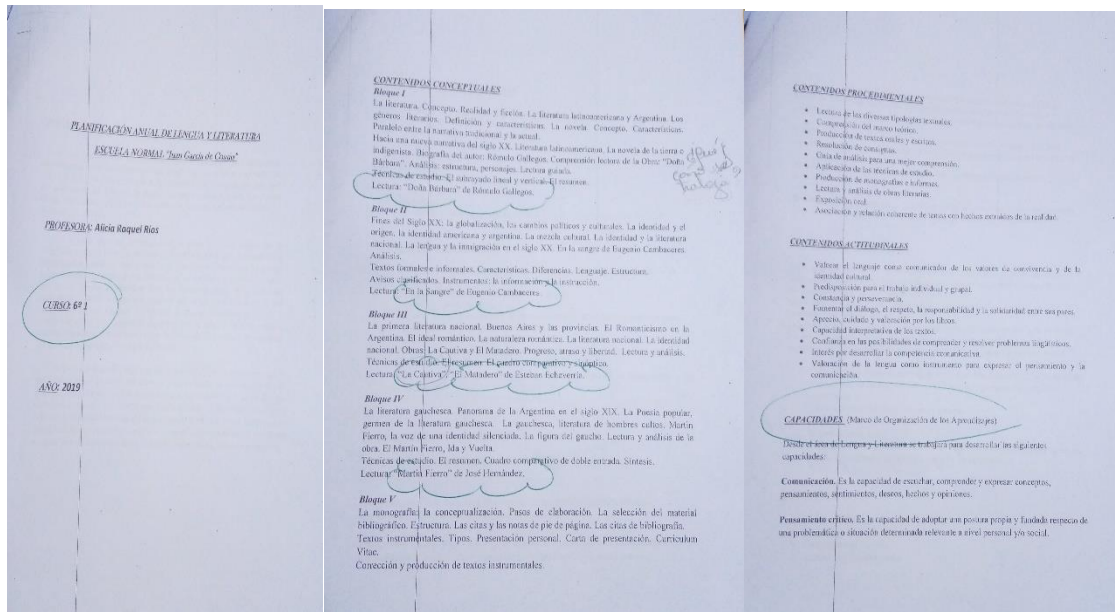 PLANIFICACIÓN ANUAL DE LENGUA Y LITERATURA
ESCUELA NORMAL "Juan García de Cossio"
PROFESORA: Alicia Raquel Ríos
CURSO: 6º 1
AÑO: 2019
CONTENIDOS CONCEPTUALES
Bloque I
La literatura. Concepto. Realidad y ficción. La literatura latinoamericana y Argentina. Los
géneros literarios. Definición y características. La novela. Concepto. Características.
Paralelo entre la narrativa tradicional y la actual.
Hacia una nueva narrativa del siglo XX. Literatura latinoamericana. La novela de la tierra o
indigenista. Biografía del autor: Rómulo Gallegos. Comprensión lectora de la Obra: "Doña
Bárbara". Análisis: estructura, personajes. Lectura guiada.
Técnicas de estudio: El subrayado lineal y vertical. El resumen.
Lectura: "Doña Bárbara" de Rómulo Gallegos.
Bloque II
Fines del Siglo XX: la globalización, los cambios políticos y culturales. La identidad y el
origen, la identidad americana y argentina. La mezcla cultural. La identidad y la literatura
nacional. La lengua y la inmigración en el siglo XX. En la sangre de Eugenio Cambaceres.
Análisis.
Textos formales e informales. Características. Diferencias. Lenguaje. Estructura.
Avisos clasificados. Instrumentos: la información y la instrucción.
Lectura: "En la Sangre" de Eugenio Cambaceres.
Bloque III
La primera literatura nacional. Buenos Aires y las provincias. El Romanticismo en la
Argentina. El ideal romántico. La naturaleza romántica. La literatura nacional. La identidad
nacional. Obras: La Cautiva y El Matadero. Progreso, atraso y libertad. Lectura y análisis.
Técnicas de estudio: El resumen. El cuadro comparativo y sinóptico.
Lectura: "La Cautiva", "El Matadero" de Esteban Echeverría.
Bloque IV
La literatura gauchesca. Panorama de la Argentina en el siglo XIX. La Poesía popular,
germen de la literatura gauchesca. La gauchesca, literatura de hombres cultos. Martín
Fierro, la voz de una identidad silenciada. La figura del gaucho. Lectura y análisis de la
obra. El Martín Fierro, Ida y Vuelta
Técnicas de estudio. El resumen. Cuadro comparativo de doble entrada. Síntesis.
Lectura: "Martín Fierro" de José Hernández.
Bloque V
La monografía: la conceptualización. Pasos de elaboración. La selección del material
bibliográfico. Estructura. Las citas y las notas de pie de página. Las citas de bibliografía.
Textos instrumentales. Tipos. Presentación personal. Carta de presentación. Curriculum
Vitae.
Corrección y producción de textos instrumentales.
CONTENIDOS PROCEDIMENTALES
• Lectura de las diversas tipologías textuales.
• Comprensión del marco teórico.
• Producción de textos orales y escritos.
• Resolución de consignas.
• Guía de análisis para una mejor comprensión.
• Aplicación de las técnicas de estudio.
• Producción de monografías e informes.
• Lectura y análisis de obras literarias.
• Exposición oral.
• Asociación y relación coherente de textos con hechos extraídos de la realidad.
CONTENIDOS ACTITUDINALES
• Valorar el lenguaje como comunicador de los valores de convivencia y de la
identidad cultural.
• Predisposición para el trabajo individual y grupal.
• Constancia y perseverancia.
• Fomentar el diálogo, el respeto, la responsabilidad y la solidaridad entre sus pares.
• Aprecio, cuidado y valoración por los libros.
• Capacidad interpretativa de los textos.
• Confianza en las posibilidades de comprender y resolver problemas lingüísticos.
• Interés por desarrollar la competencia comunicativa.
• Valoración de la lengua como instrumento para expresar el pensamiento y la
comunicación.
CAPACIDADES (Marco de Organización de los Aprendizajes)
Desde el área de Lengua y Literatura se trabajará para desarrollar las siguientes
capacidades:
Comunicación. Es la capacidad de escuchar, comprender y expresar conceptos,
pensamientos, sentimientos, deseos, hechos y opiniones.
Pensamiento crítico. Es la capacidad de adoptar una postura propia y fundada respecto de
una problemática o situación determinada relevante a nivel personal y/o social.